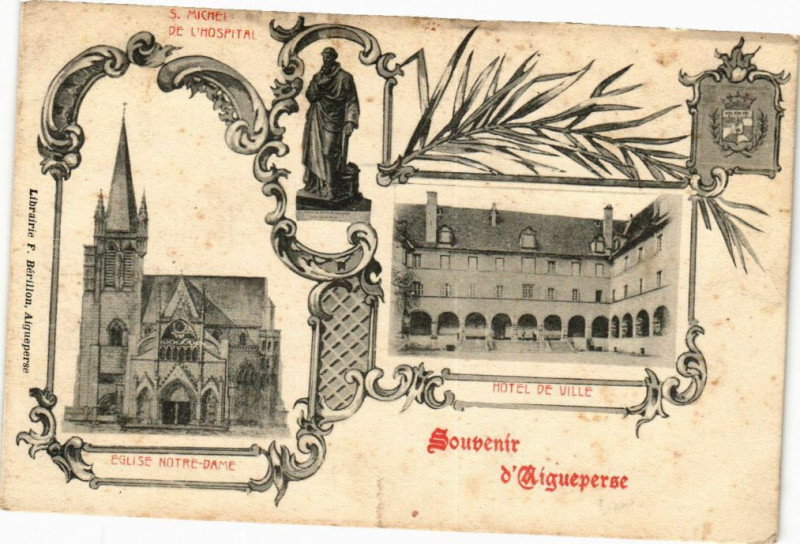 S. MICHEL
DE L'HOSPITAL
Librairie F. Bérillon, Aigueperse
HOTEL DE VILLE
EGLISE NOTRE-DAME
Souvenir
d'Aigueperse